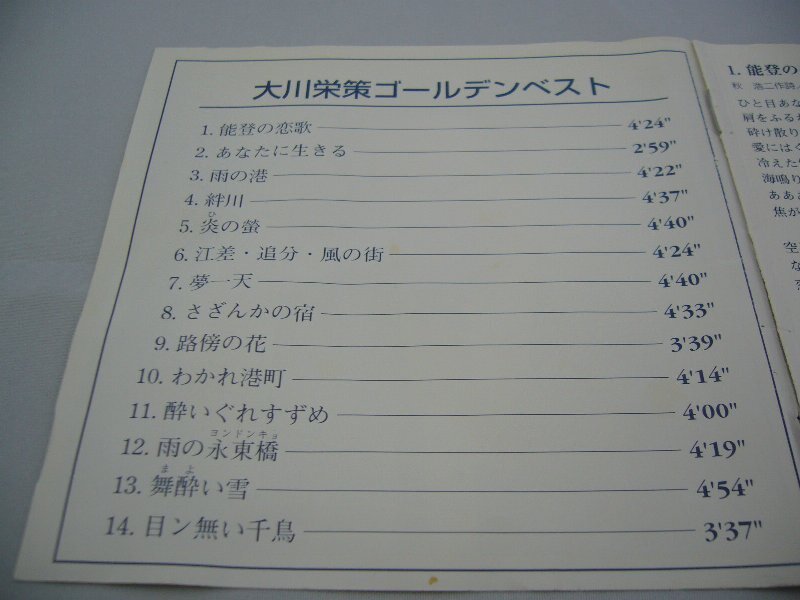 大川栄策ゴールデンベスト
1. 能登の恋歌 4'24"
2. あなたに生きる 2'59"
3. 雨の港 4'22"
4. 絆川 4'37"
ひ
5. 炎の螢 4'40"
6. 江差・追分・風の街 4'24"
7. 夢一天 4'40"
8. さざんかの宿 4'33"
9. 路傍の花 3'39"
10. わかれ港町 4'14"
11. 酔いぐれすずめ 4'00"
ヨンドンキョ
12. 雨の永東橋 4'19"
まよ
13. 舞酔い雪 4'54"
14. 目ン無い千鳥 3'37"
1. 能登の
秋 浩二作詩
ひと目あな
肩をふるわ
砕け散り
愛にはぐ
冷えた
海鳴り
ああ
焦が
空
な